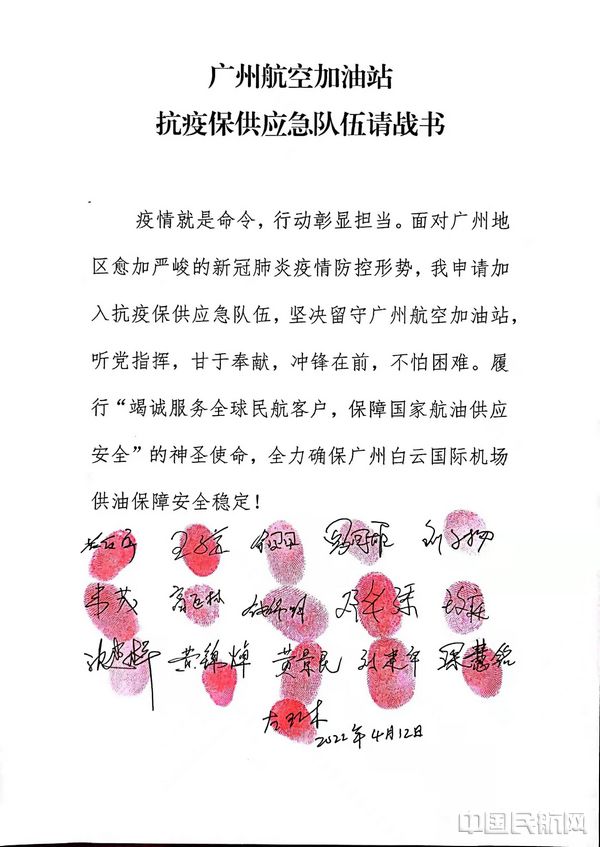 广州航空加油站
抗疫保供应急队伍请战书
疫情就是命令，行动彰显担当。面对广州地
区愈加严峻的新冠肺炎疫情防控形势，我申请加
入抗疫保供应急队伍，坚决留守广州航空加油站，
听党指挥，甘于奉献，冲锋在前，不怕困难。履
行“竭诚服务全球民航客户，保障国家航油供应
安全”的神圣使命，全力确保广州白云国际机场
供油保障安全稳定！
黄锦焯 黄景民
2022年4月12日
中国民航网